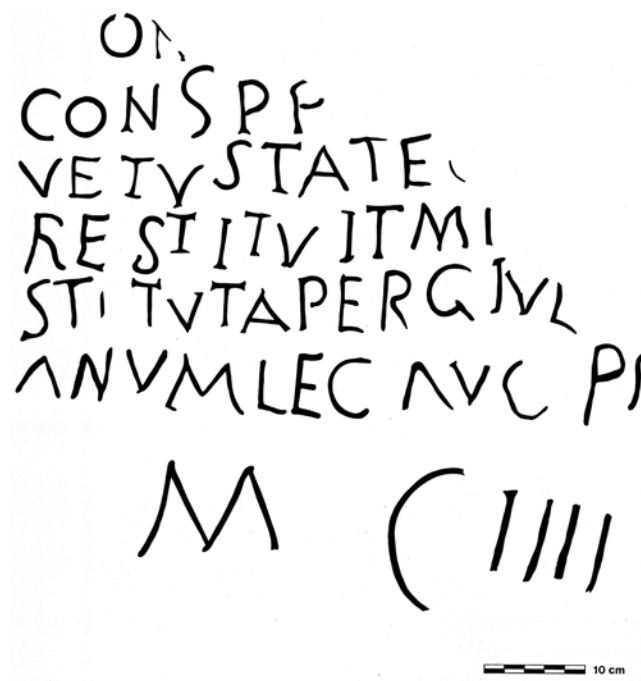 CONS P F
VETVSTATE
RESTITVIT MI
STITVTA PER G IVL
ANVM LEC AVC P
M C IIII
10 cm